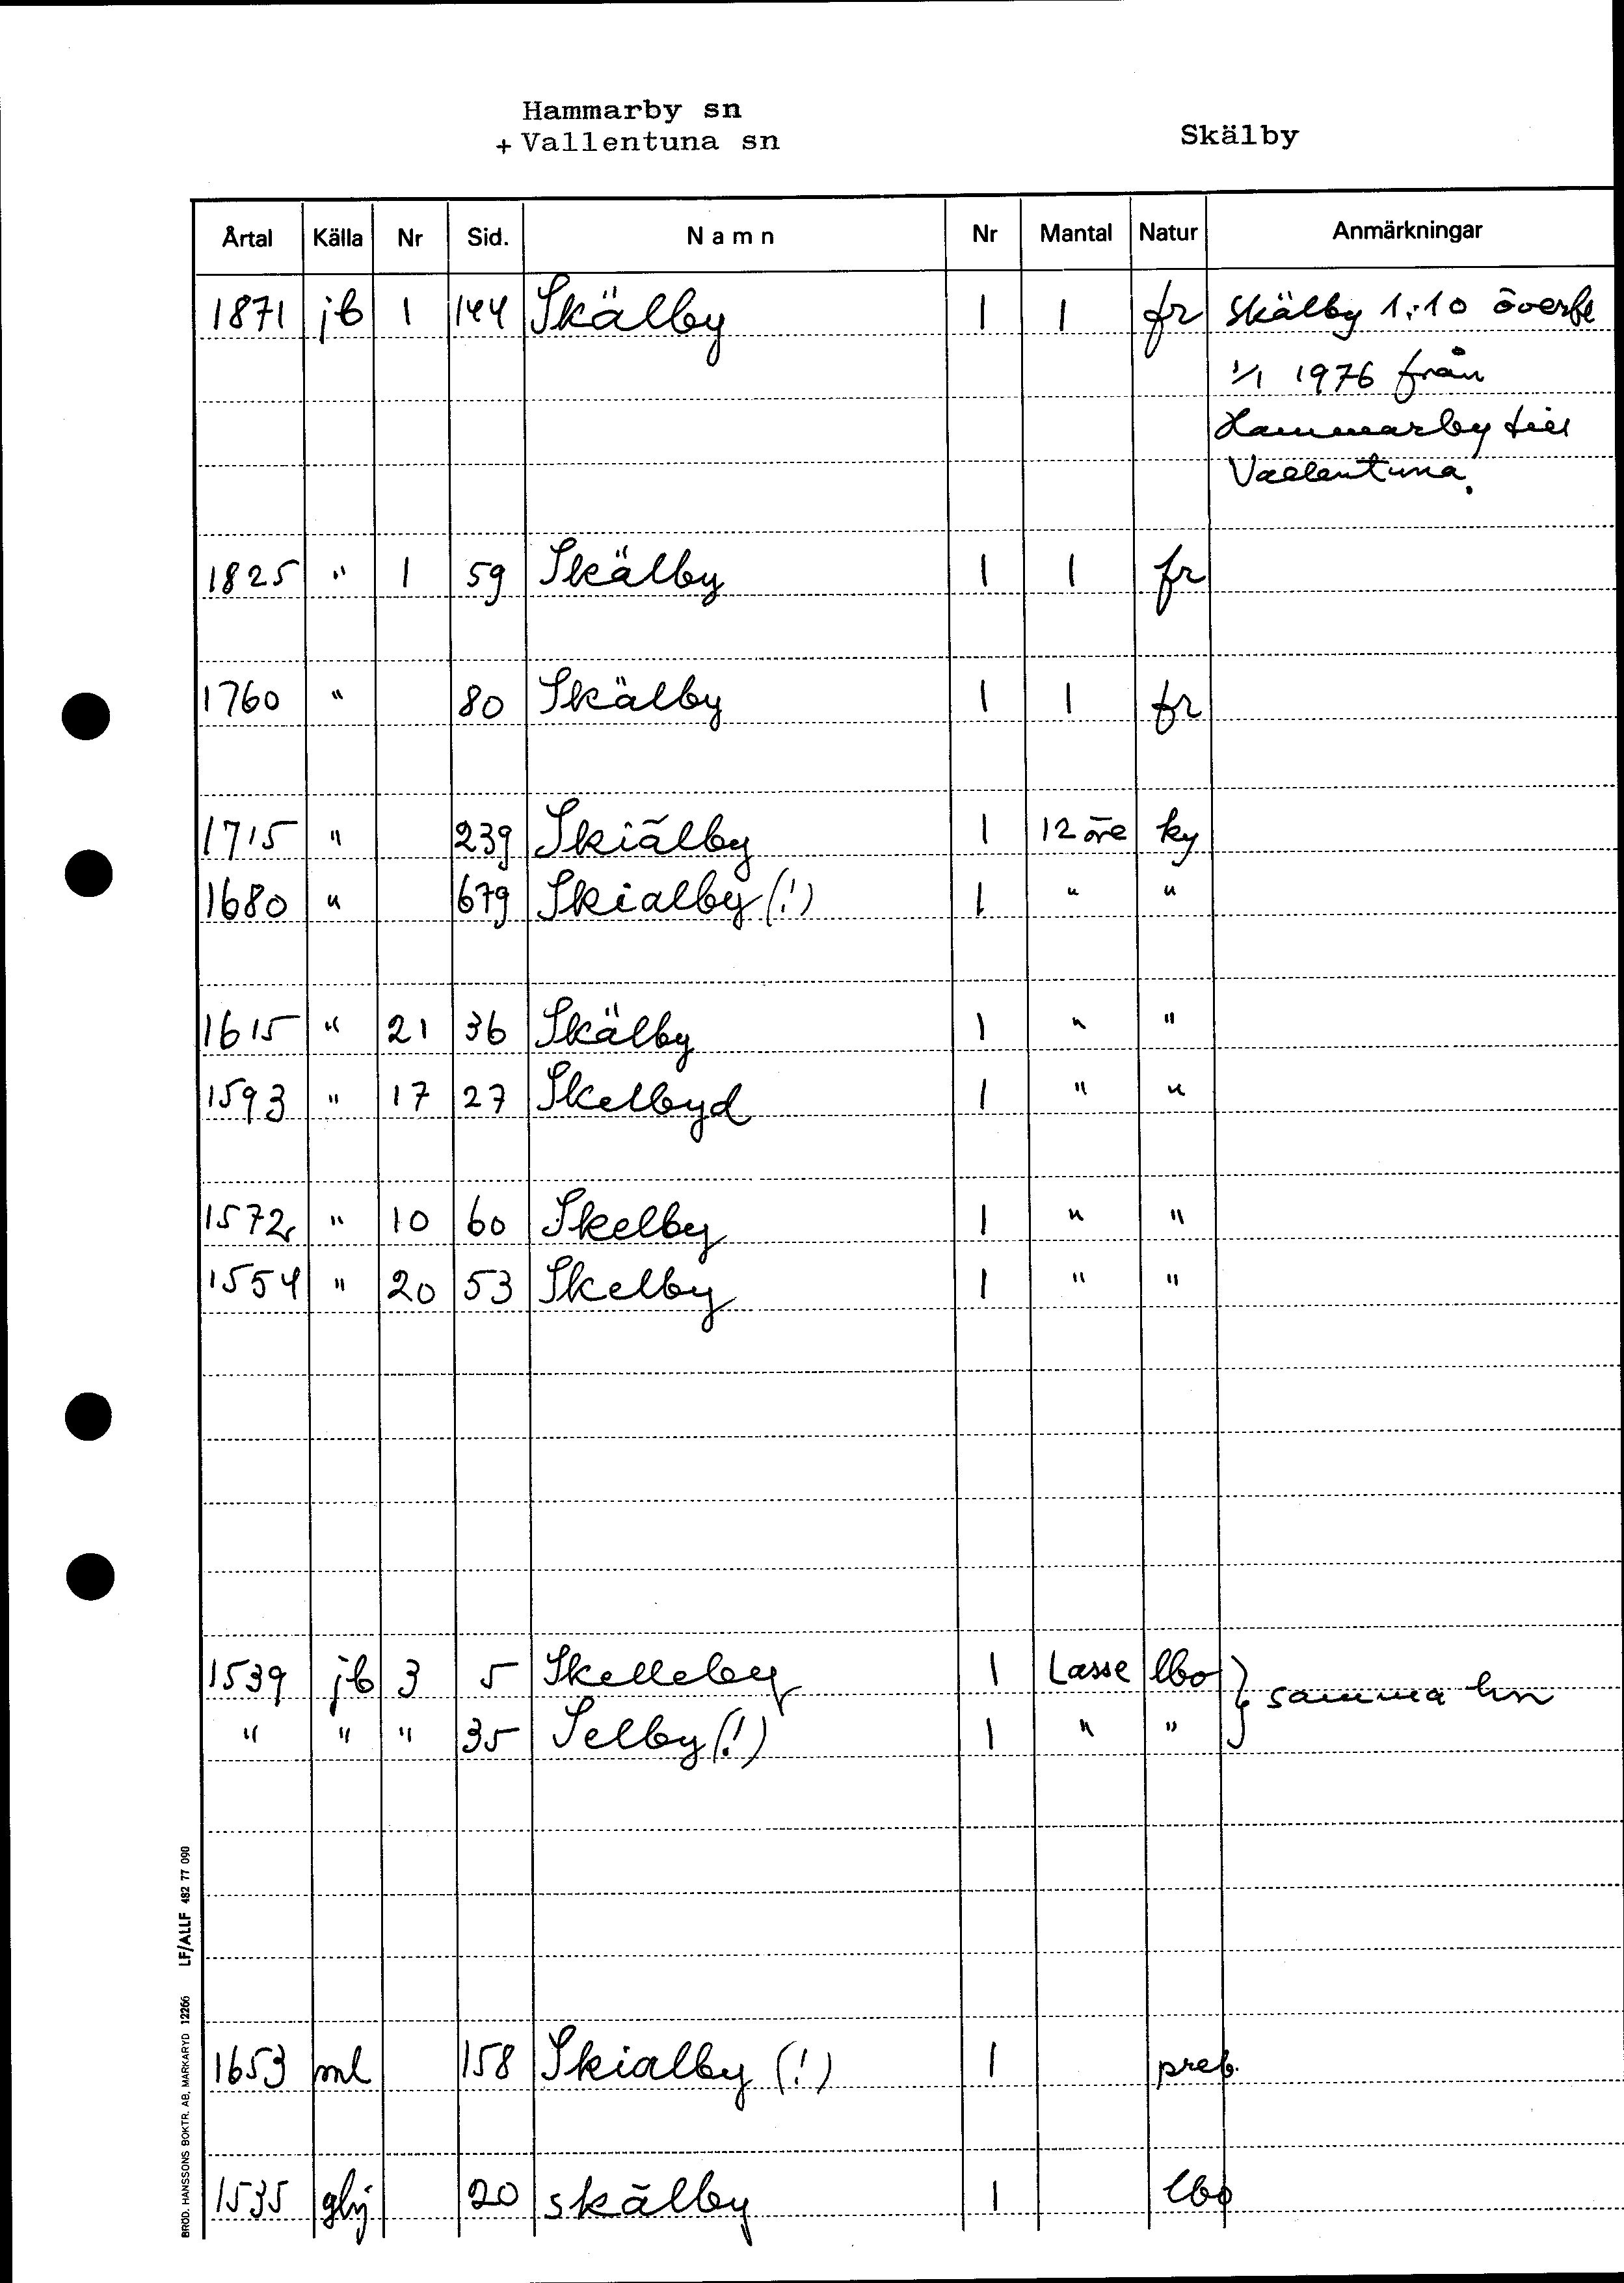 Hammarby sn
+ Vallentuna sn
Skälby
Årtal Källa Nr Sid. Namn Nr Mantal Natur Anmärkningar
1871 jb 1 144 Skälby 1 1 fr Skälby 1:10 överfe
1/1 1976 från
Hammarby till
Vallentuna.
1825 " 1 59 Skälby 1 1 fr
1760 " 80 Skälby 1 1 fr
1715 " 239 Skiälby 1 12 öre ky
1680 " 679 Skialby (!) 1 " "
1615 " 21 36 Skälby 1 " "
1593 " 17 27 Skelbyd 1 " "
1572 " 10 60 Skelby 1 " "
1554 " 20 53 Skelby 1 " "
1539 jb 3 5 Skelleby 1 Lasse lbo } samma hn
" " " 35 Selby (!) 1 " "
1653 ml 158 Skialby (!) 1 preb.
1535 ghj 20 skälby 1 lbo
BRÖD. HANSSONS BOKTR. AB, MARKARYD 12266 LF/ALLF 482 77 090